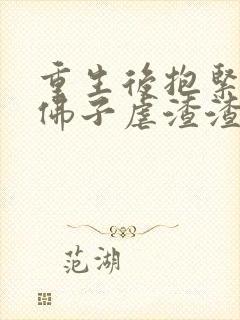 重生後抱緊
佛子虐渣渣
范湖